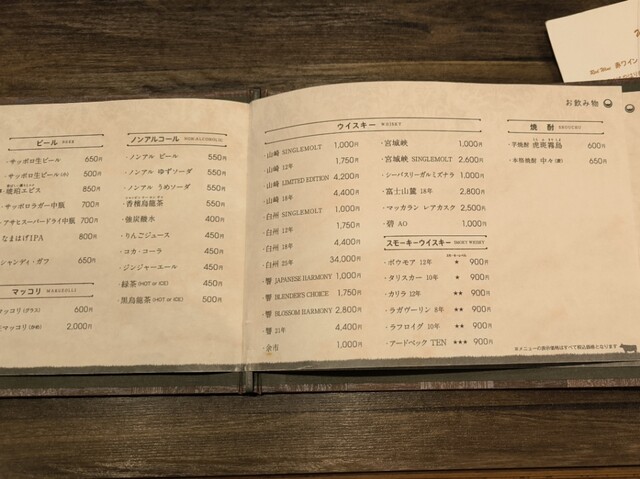 Red Wine 赤ワイン
お飲み物
ビール BEER
・サッポロ生ビール 650円
・サッポロ生ビール(小) 500円
・琥珀ヱビス 850円
・サッポロラガー中瓶 700円
・アサヒスーパードライ中瓶 700円
なまはげIPA 800円
シャンディ・ガフ 650円
マッコリ MAKGEOLLI
マッコリ(グラス) 600円
マッコリ 2,000円
ノンアルコール NON-ALCOHOLIC
・ノンアル ビール 550円
・ノンアル ゆずソーダ 550円
・ノンアル うめソーダ 550円
・香檳烏龍茶 550円
・強炭酸水 400円
・りんごジュース 450円
・コカ・コーラ 450円
・ジンジャーエール 450円
・緑茶(HOT or ICE) 450円
・黒烏龍茶(HOT or ICE) 500円
ウイスキー WHISKY
・山崎 SINGLEMOLT 1,000円
・山崎 12年 1,750円
・山崎 LIMITED EDITION 4,200円
・山崎 18年 4,400円
・白州 SINGLEMOLT 1,000円
・白州 12年 1,750円
・白州 18年 4,400円
・白州 25年 34,000円
・響 JAPANESE HARMONY 1,000円
・響 BLENDER'S CHOICE 1,750円
・響 BLOSSOM HARMONY 2,800円
・響 21年 4,400円
・余市 1,000円
・宮城峡 1,000円
・宮城峡 SINGLEMOLT 2,600円
・シーバスリーガルミズナラ 1,000円
・富士山麓 18年 2,800円
・マッカラン レアカスク 2,500円
・碧 AO 1,000円
スモーキーウイスキー SMOKY WHISKY
・ボウモア 12年 900円
・タリスカー 10年 ★ 900円
・カリラ 12年 ★★ 900円
・ラガヴーリン 8年 ★★ 900円
・ラフロイグ 10年 ★ 900円
・アードベック TEN ★★★ 900円
焼酎 SHOCHU
・芋焼酎 虎斑霧島 600円
・本格焼酎 中々(麦) 650円
※メニューの表示価格はすべて税込価格となります